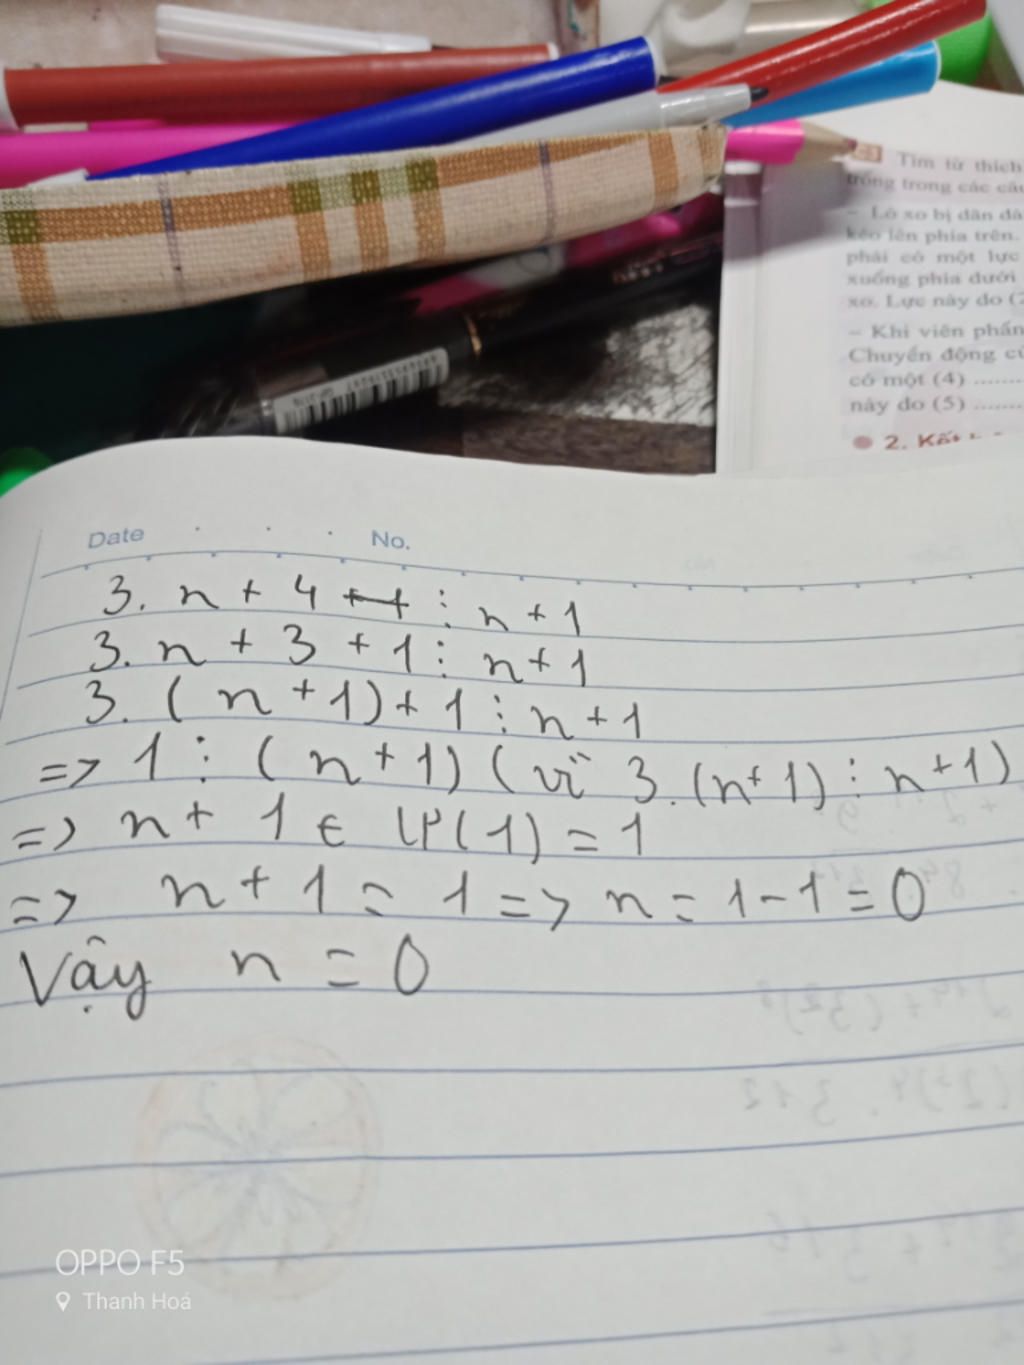 Tìm từ thích
trống trong các câu
- Lò xo bị dãn dà
kéo lên phía trên.
phải có một lực
xuống phía dưới
xo. Lực này do (2
- Khi viên phấn
Chuyển động củ
có một (4) ........
này do (5) ........
2. Kết
Date No.
3. n + 4 ⋮ n + 1
3. n + 3 + 1 ⋮ n + 1
3. ( n + 1) + 1 ⋮ n + 1
=> 1 ⋮ ( n + 1) ( vì 3. (n + 1) ⋮ n + 1)
=> n + 1 ∈ Ư(1) = 1
=> n + 1 = 1 => n = 1 - 1 = 0
Vậy n = 0
OPPO F5
Thanh Hoá